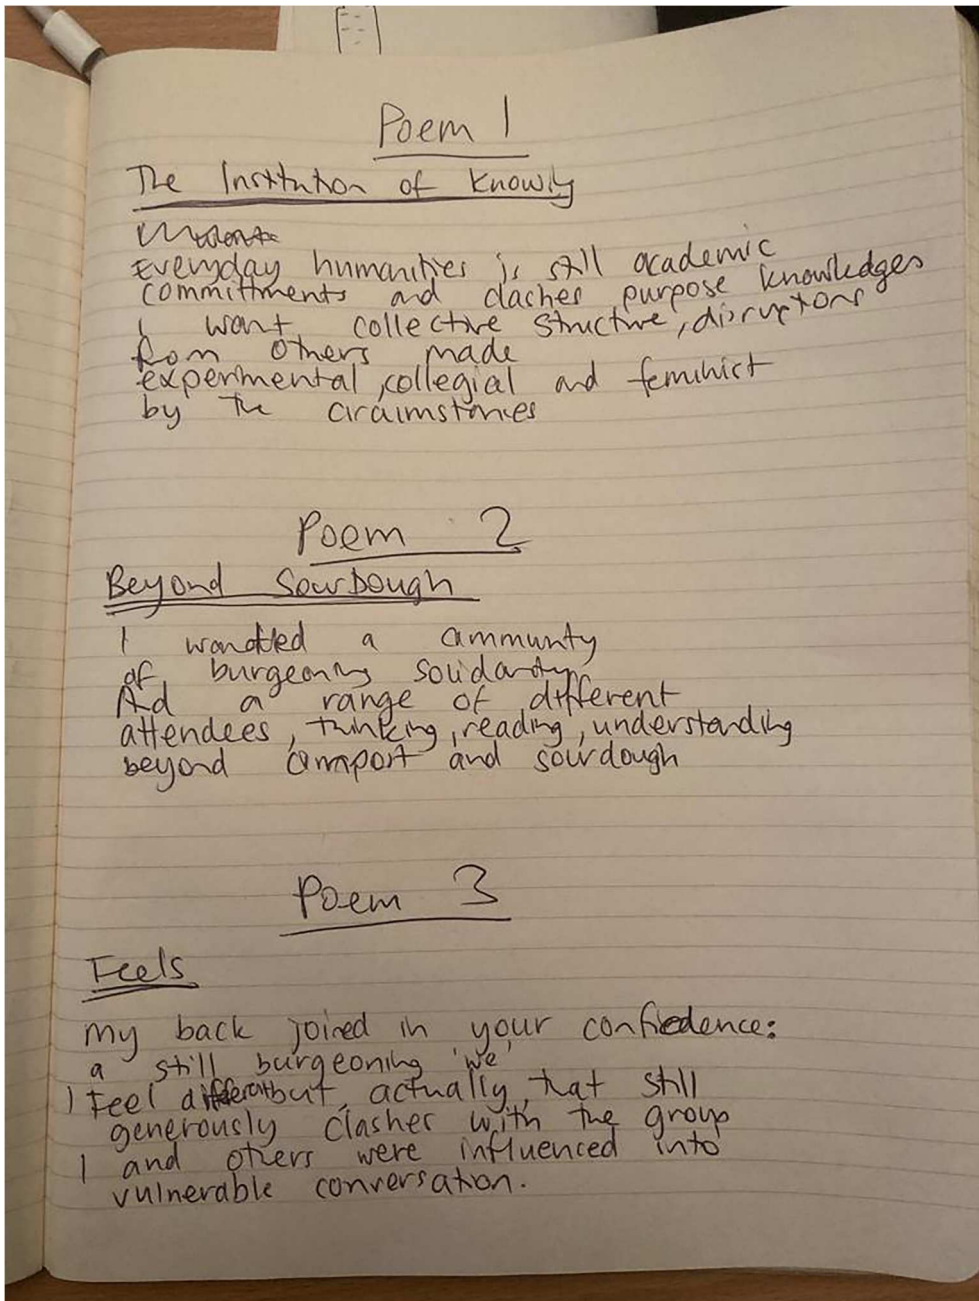 Poem 1
The Institution of Knowing
Everyday humanities is still academic
committments and clashes purpose knowledges
I want collective structure, disruptions
from others made
experimental, collegial and feminist
by the circumstances
Poem 2
Beyond SourDough
I wanted a community
of burgeoning solidarity
And a range of different
attendees, thinking, reading, understanding
beyond comport and sourdough
Poem 3
Feels
My back joined in your confidence:
a still burgeoning 'we'
I Feel different but, actually, that still
generously clashes with the group
I and others were influenced into
vulnerable conversation.